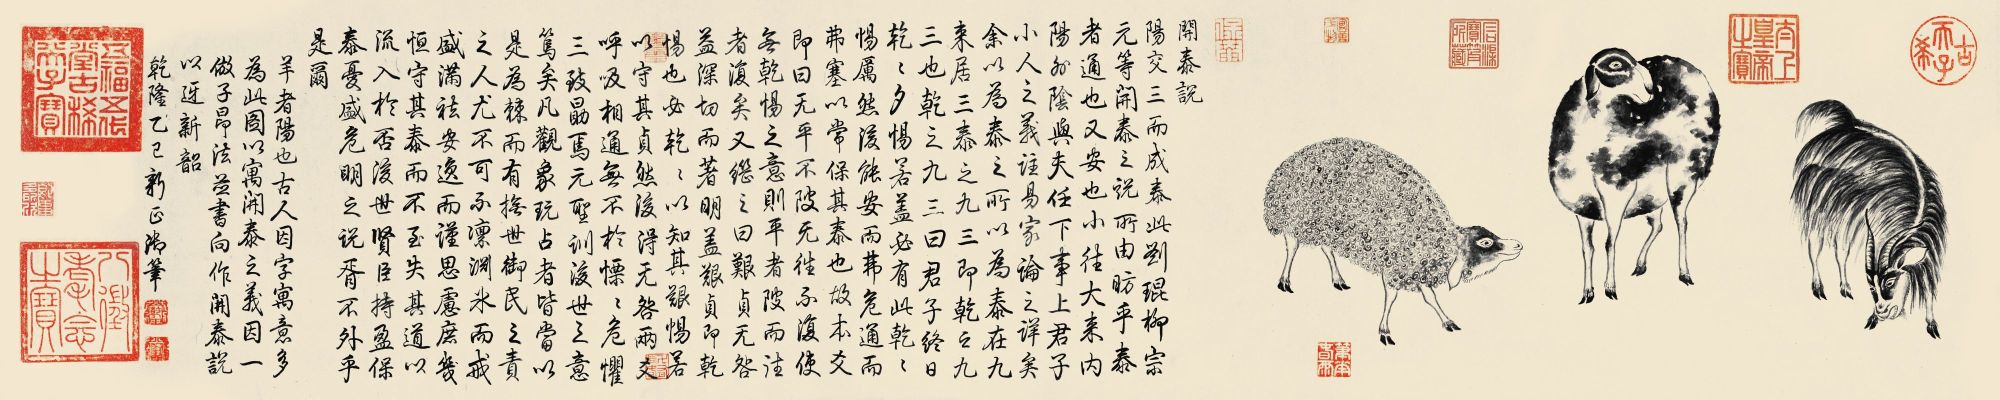 古希天子
太上皇帝之寶
開泰説
陽交三而成泰此劉琨柳宗
元等開泰之說所由昉乎泰
者通也又安也小往大来内
陽外陰與夫任下事上君子
小人之義註易家論之詳矣
余以為泰之所以為泰在九
来居三泰之九三即乾之九
三也乾之九三曰君子終日
乾〻夕惕若蓋必有此乾〻
惕厲然後能安而弗危通而
弗塞以常保其泰也故本爻
即曰无平不陂无往不復使
無乾惕之意則平者陂而往
者復矣又繼之曰艱貞无咎
益深切而著明蓋艱貞即乾
惕也必乾〻以知其艱惕若
以守其貞然後得无咎兩爻
呼吸相通無不於慄〻危懼
三致勗焉元聖訓後世之意
篤矣凡觀象玩占者皆當以
是為棘而有撫世御民之責
之人尤不可不凛淵氷而戒
盛滿祛安逸而謹思慮庶幾
恒守其泰而不至失其道以
流入於否後世賢臣持盈保
泰憂盛危明之說胥不外乎
是爾
羊者陽也古人因字寓意多
為此圖以寓開泰之義因一
倣子昂法並書向作開泰說
以迓新韶
乾隆乙巳新正御筆
五福五代堂古稀天子寶
八徵耄念之寶